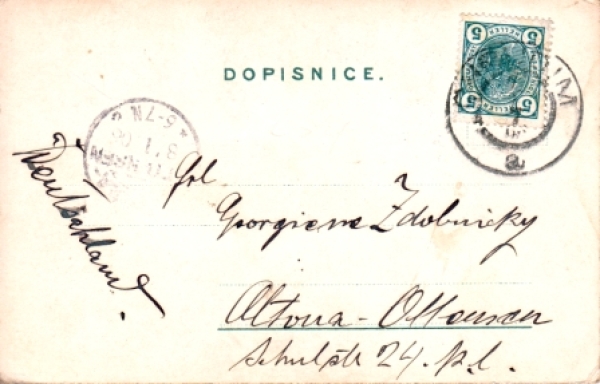 DOPISNICE.
5 HELLER 5
5 5
Deutschland.
Frl.
Georgiene Zdobnicky
Altona-Ottensen
Schulstr 24. p.l.